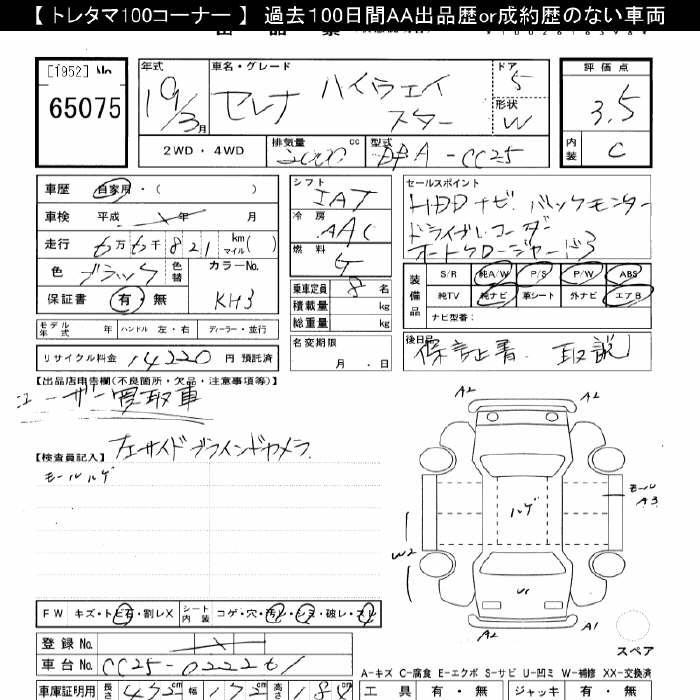 【 トレタマ100コーナー 】 過去100日間AA出品歴or成約歴のない車両
[1952] No.
65075
年式 19/3月
車名・グレード セレナ ハイウェイスター
ドア 5
形状 W
評価点 3.5
内装 C
2WD ・ 4WD
排気量 2000 cc
型式 DBA-CC25
車歴 自家用・( )
車検 平成 年 月
走行 6万6千821 km マイル( )
色 ブラック 色替
カラーNo. KH3
保証書 有・無
モデル年式 年 ハンドル 左・右 ディーラー・並行
リサイクル料金 14220 円 預託済
シフト IAT
冷房 AAC
燃料 G
乗車定員 8 名
積載量 kg
総重量 kg
名変期限 月 . 日
セールスポイント
HDDナビ バックモンター
ドライブレコーダー
オートクロージャード3
装備品 S/R 純A/W P/S P/W ABS
純TV 純ナビ 革シート 外ナビ エアB
ナビ型番:
後日品
保証書 取説
【出品店申告欄(不良箇所・欠品・注意事項等)】
ユーザー買取車
左サイドブラインドカメラ
【検査員記入】
モールハゲ
A2
A2
ハゲ
モール
A3
W2
A2
A1
スペア
FW キズ・トビ石・割レX シート内装 コゲ・穴・汚レ・シミ・破レ・スレ
登録 No.
車台 No. CC25-022261
A-キズ C-腐食 E-エクボ S-サビ U-凹ミ W-補修 XX-交換済
車庫証明用 長さ 472cm 幅 172cm 高さ 184
工具 有・無 ジャッキ 有・無